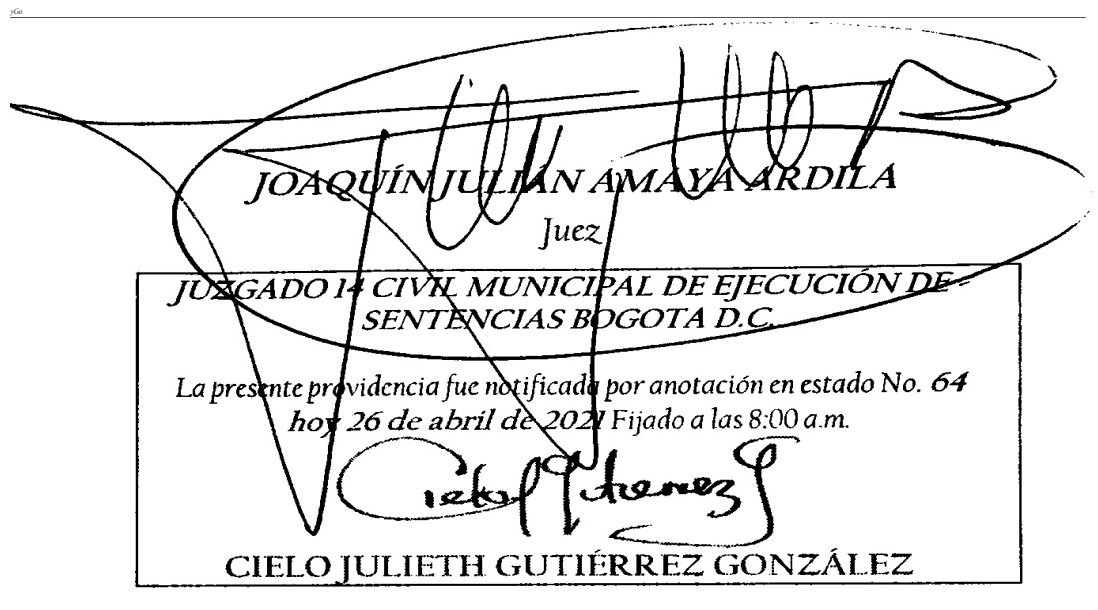 yGo
JOAQUÍN JULIÁN AMAYA ARDILA
Juez
JUZGADO 14 CIVIL MUNICIPAL DE EJECUCIÓN DE
SENTENCIAS BOGOTA D.C.
La presente providencia fue notificada por anotación en estado No. 64
hoy 26 de abril de 2021 Fijado a las 8:00 a.m.
Cielo J Gutierrez G
CIELO JULIETH GUTIÉRREZ GONZÁLEZ